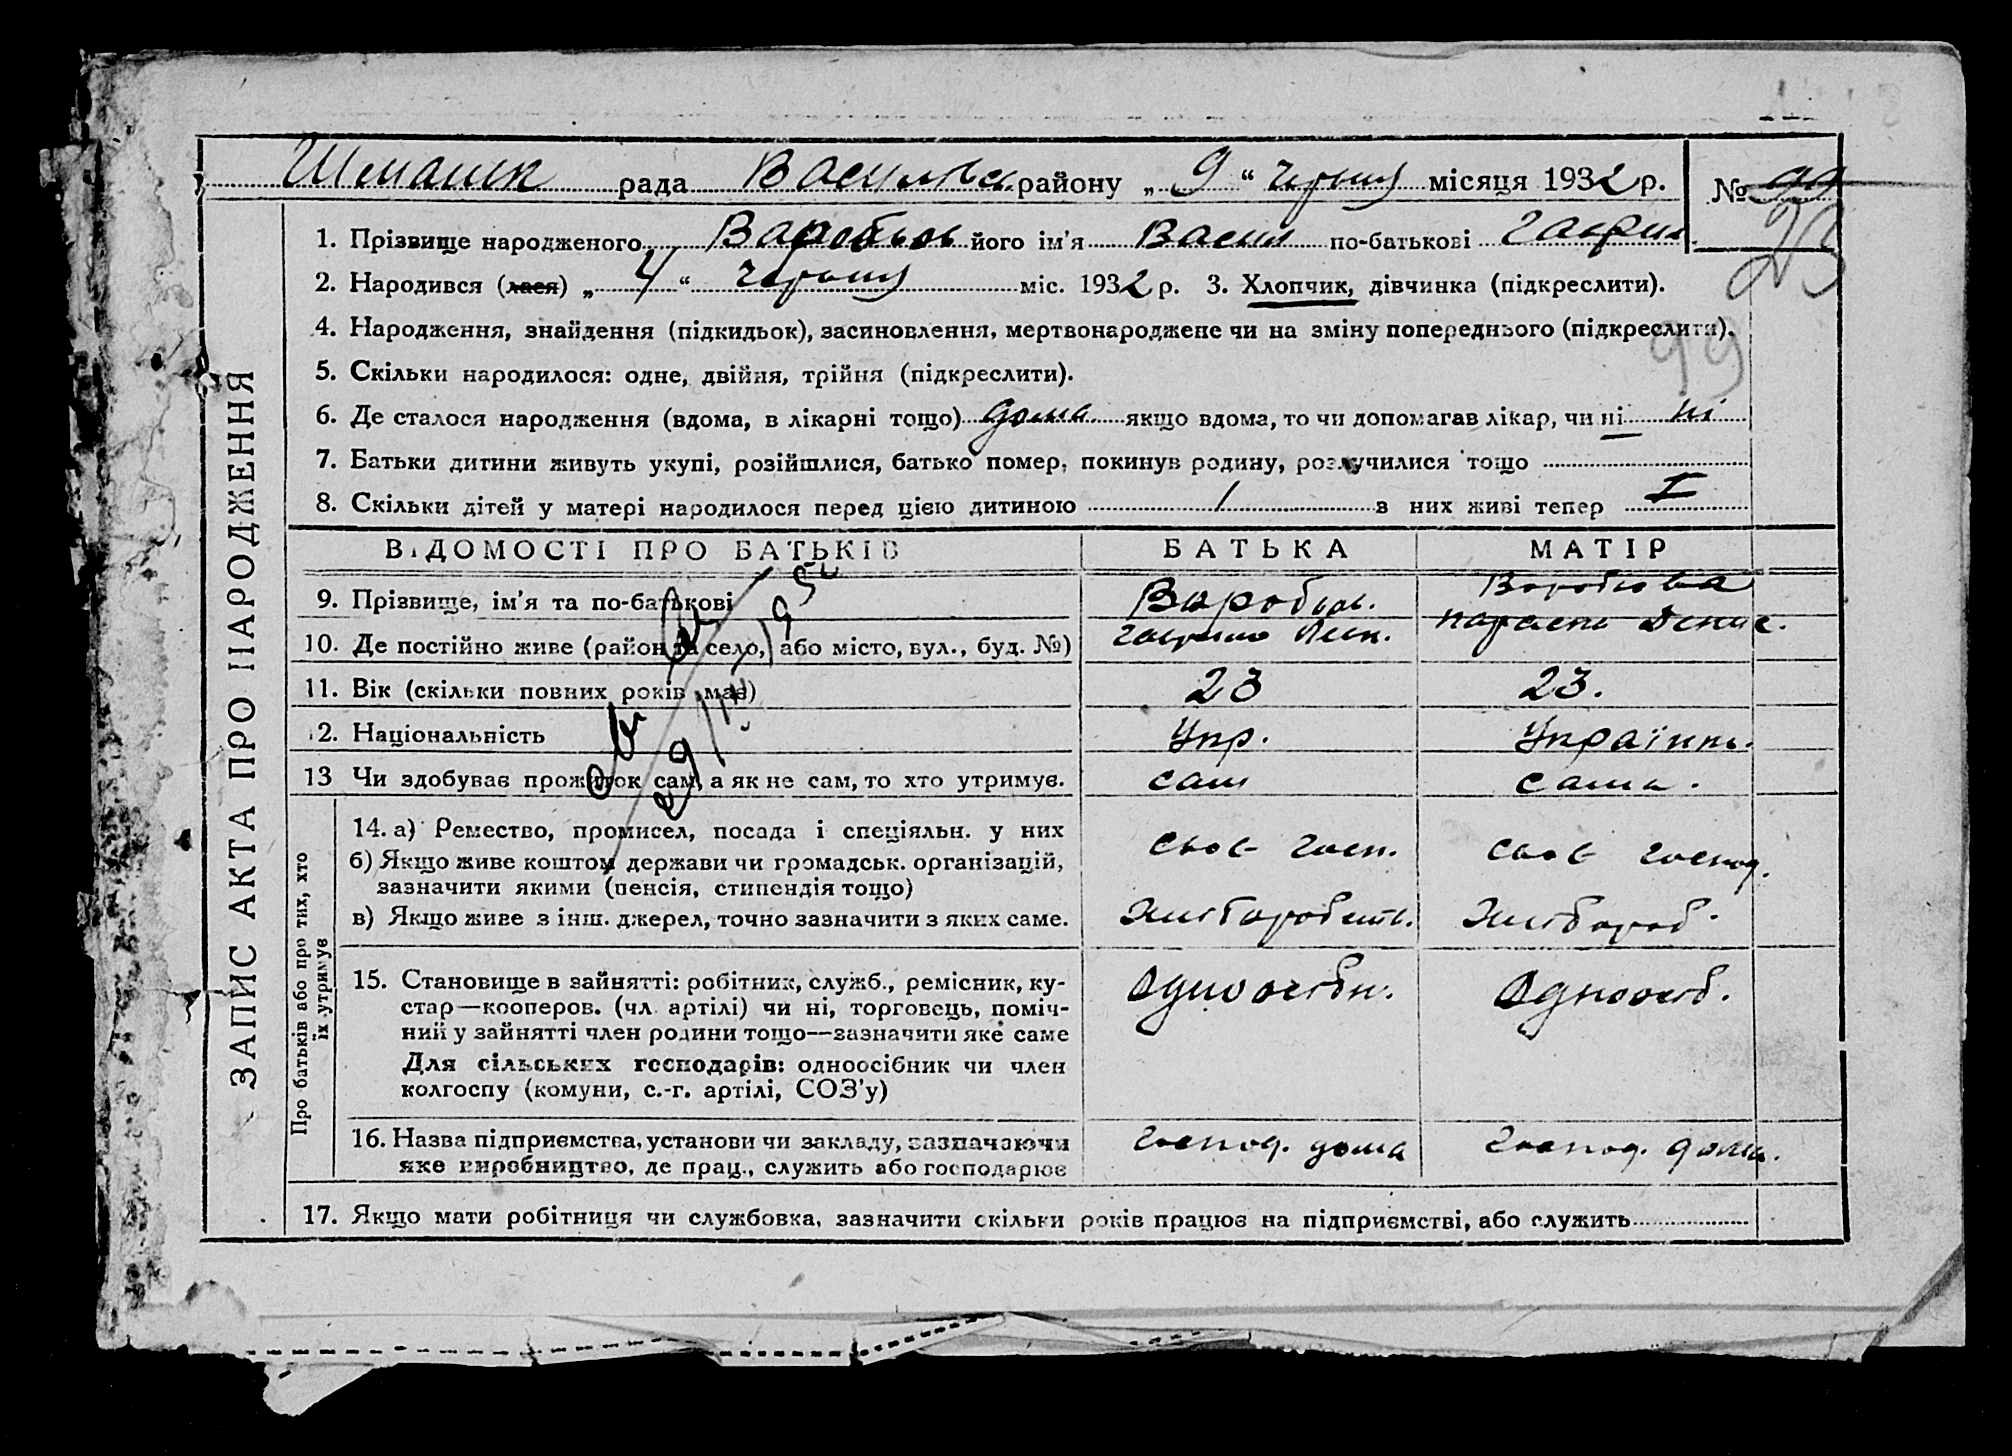 рада Васильк. району „ 9 “ червня місяця 1932 р. №
1. Прізвище народженого Воробьов його ім'я Васил по-батькові Гаврил.
2. Народився (лася) „ 4 “ червня міс. 1932 р. 3. Хлопчик, дівчинка (підкреслити).
29
4. Народження, знайдення (підкидьок), засиновлення, мертвонароджене чи на зміну попереднього (підкреслити).
99
5. Скільки народилося: одне, двійня, трійня (підкреслити).
6. Де сталося народження (вдома, в лікарні тощо) дома якщо вдома, то чи допомагав лікар, чи ні ні
7. Батьки дитини живуть укупі, розійшлися, батько помер, покинув родину, розлучилися тощо
8. Скільки дітей у матері народилося перед цією дитиною 1 з них живі тепер I
ЗАПИС АКТА ПРО НАРОДЖЕННЯ
ВІДОМОСТІ ПРО БАТЬКІВ БАТЬКА МАТІР
9. Прізвище, ім'я та по-батькові Воробьов. Воробьова
10. Де постійно живе (район та село, або місто, вул., буд. №) Гаврило Параска Денис.
11. Вік (скільки повних років має) 23 23.
12. Національність Укр. Українк.
13 Чи здобуває прожиток сам, а як не сам, то хто утримує. сам сама.
Про батьків або про тих, хто їх утримує
14. а) Ремество, промисел, посада і спеціяльн. у них своє госп. своє господ.
б) Якщо живе коштом держави чи громадськ. організацій,
зазначити якими (пенсія, стипендія тощо)
в) Якщо живе з інш. джерел, точно зазначити з яких саме. Хліборобств. Хлібороб.
15. Становище в зайнятті: робітник, служб., ремісник, ку-
стар—кооперов. (чл. артілі) чи ні, торговець, поміч-
ний у зайнятті член родини тощо—зазначити яке саме
Для сільських господарів: одноосібник чи член
колгоспу (комуни, с.-г. артілі, СОЗ'у)
Одноосібн. Одноосіб.
16. Назва підприємства, установи чи закладу, зазначаючи господ. дома господ. дома.
яке виробництво, де прац., служить або господарює
17. Якщо мати робітниця чи службовка, зазначити скільки років працює на підприємстві, або служить